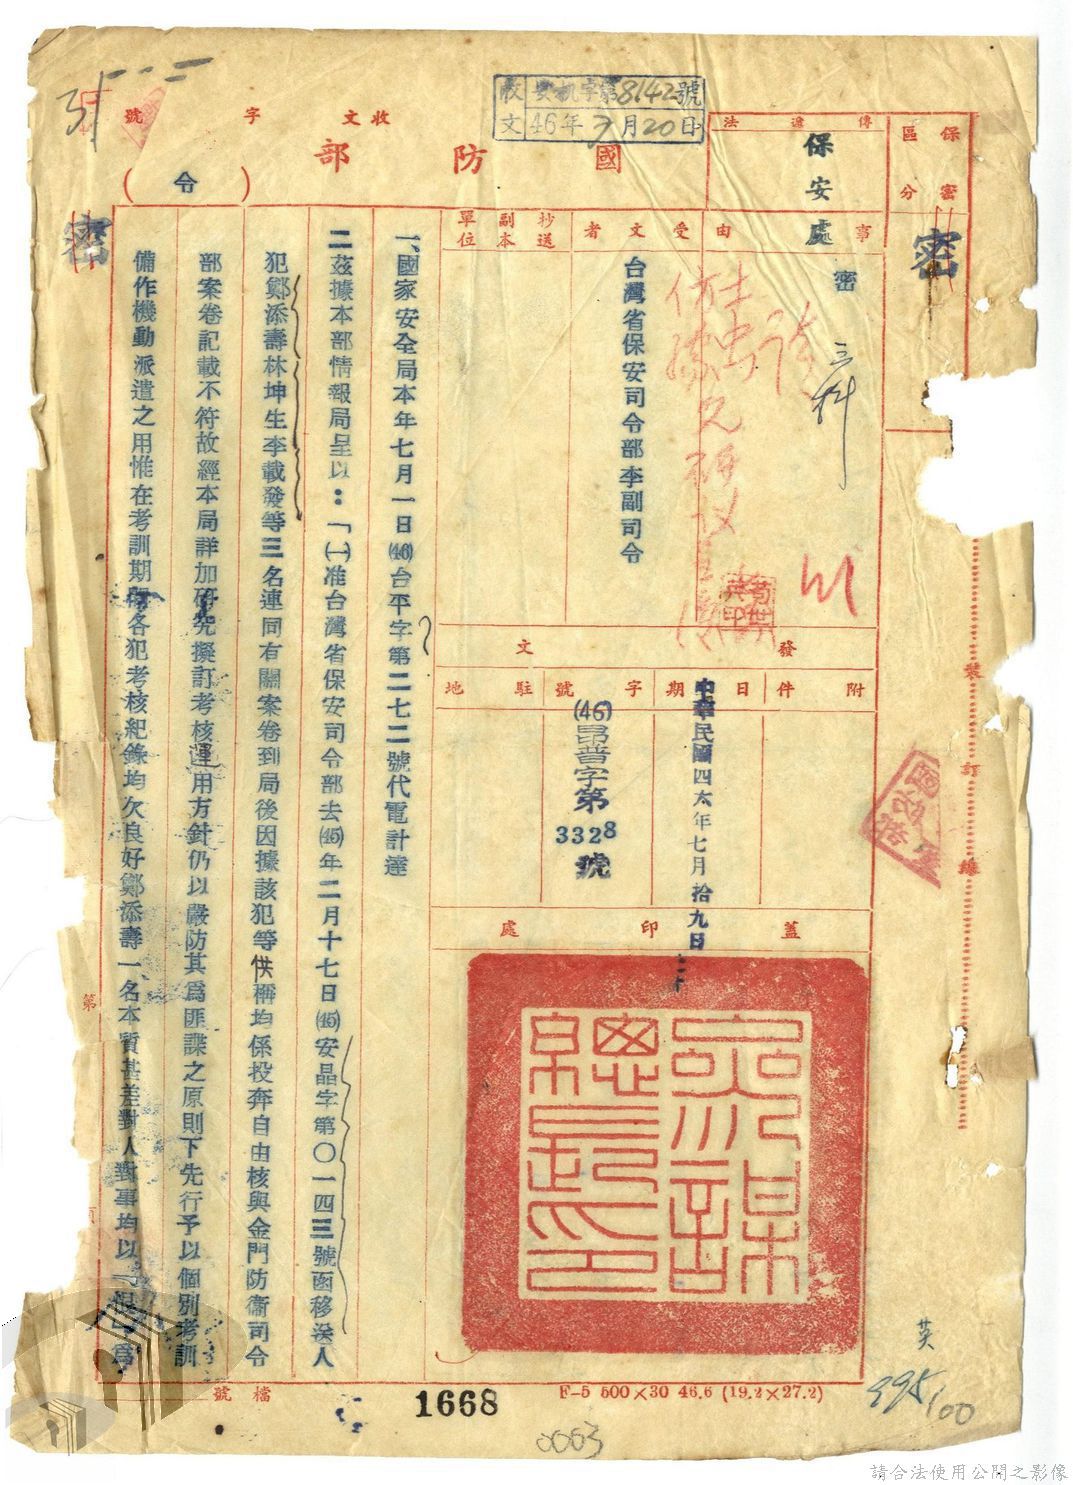 收安机字第8142號
文46年7月20日
收文 字 號
國防部
(令)
保密區分
密
密
傳遞法
保安處
事由
密
三科
受文者
台灣省保安司令部李副司令
抄送副本單位
發文
附件
日期
中華民國四六年七月拾九日
字號
(46)昂普字第3328號
駐地
蓋印處
參謀總長之印
裝訂線
一、國家安全局本年七月一日(46)台平字第二七二號代電計達
二茲據本部情報局呈以：「(一)准台灣省保安司令部去(45)年二月十七日(45)安晶字第〇一四三號函移送人
犯鄭添壽林坤生李載發等三名連同有關案卷到局後因據該犯等供稱均係投奔自由核與金門防衞司令
部案卷記載不符故經本局詳加研究擬訂考核運用方針仍以嚴防其爲匪諜之原則下先行予以個別考訓
備作機動派遣之用惟在考訓期間各犯考核紀錄均欠良好鄭添壽一名本質甚差對人對事均以「恨」爲
第
頁
檔號
1668
F-5 500×30 46.6 (19.2×27.2)
英
995/100
0003
請合法使用公開之影像